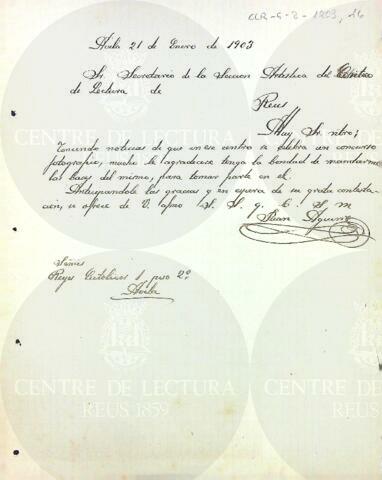 CLR-G-2-1903, 26
Ávila 21 de Enero de 1903
Sr. Secretario de la Sección Artística del Centro
de Lectura de
Reus
Muy Sr. ntro;
Teniendo noticias de que en ese centro se celebra un concurso
fotográfico, mucho le agradeceré tenga la bondad de mandarme
las bases del mismo, para tomar parte en él.
Anticipándole las gracias y en espera de su grata contesta-
ción, se ofrece de V. afmo S. S. q. b. s. m
Juan Aguirre
Señas
Reyes Católicos 1 piso 2º
Ávila
CENTRE DE LECTURA
REUS 1859